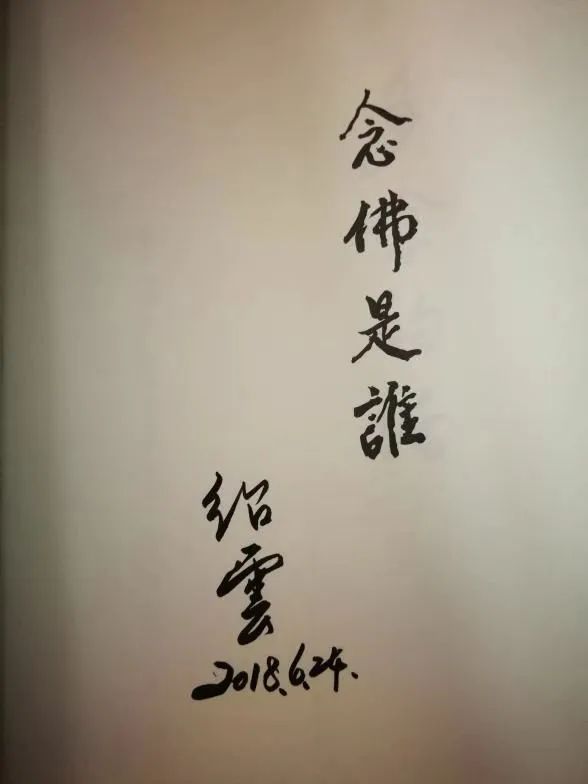 念佛是誰
绍雲
2018.6.24.